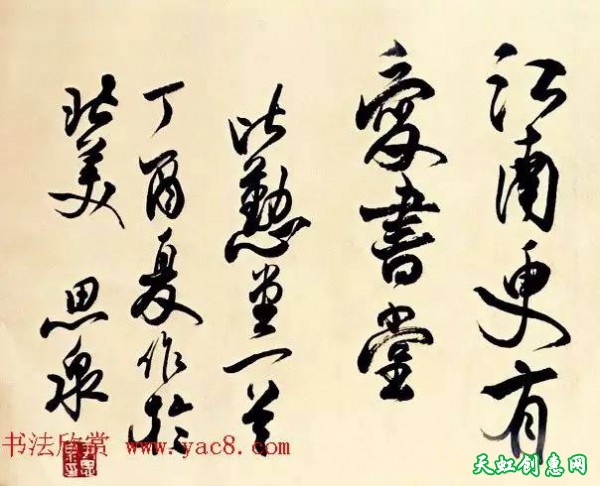 江南更有
愛書堂
懃堂一
丁酉夏作於
北美 思泉
书法欣赏 www.yac8.com
天虹创惠网